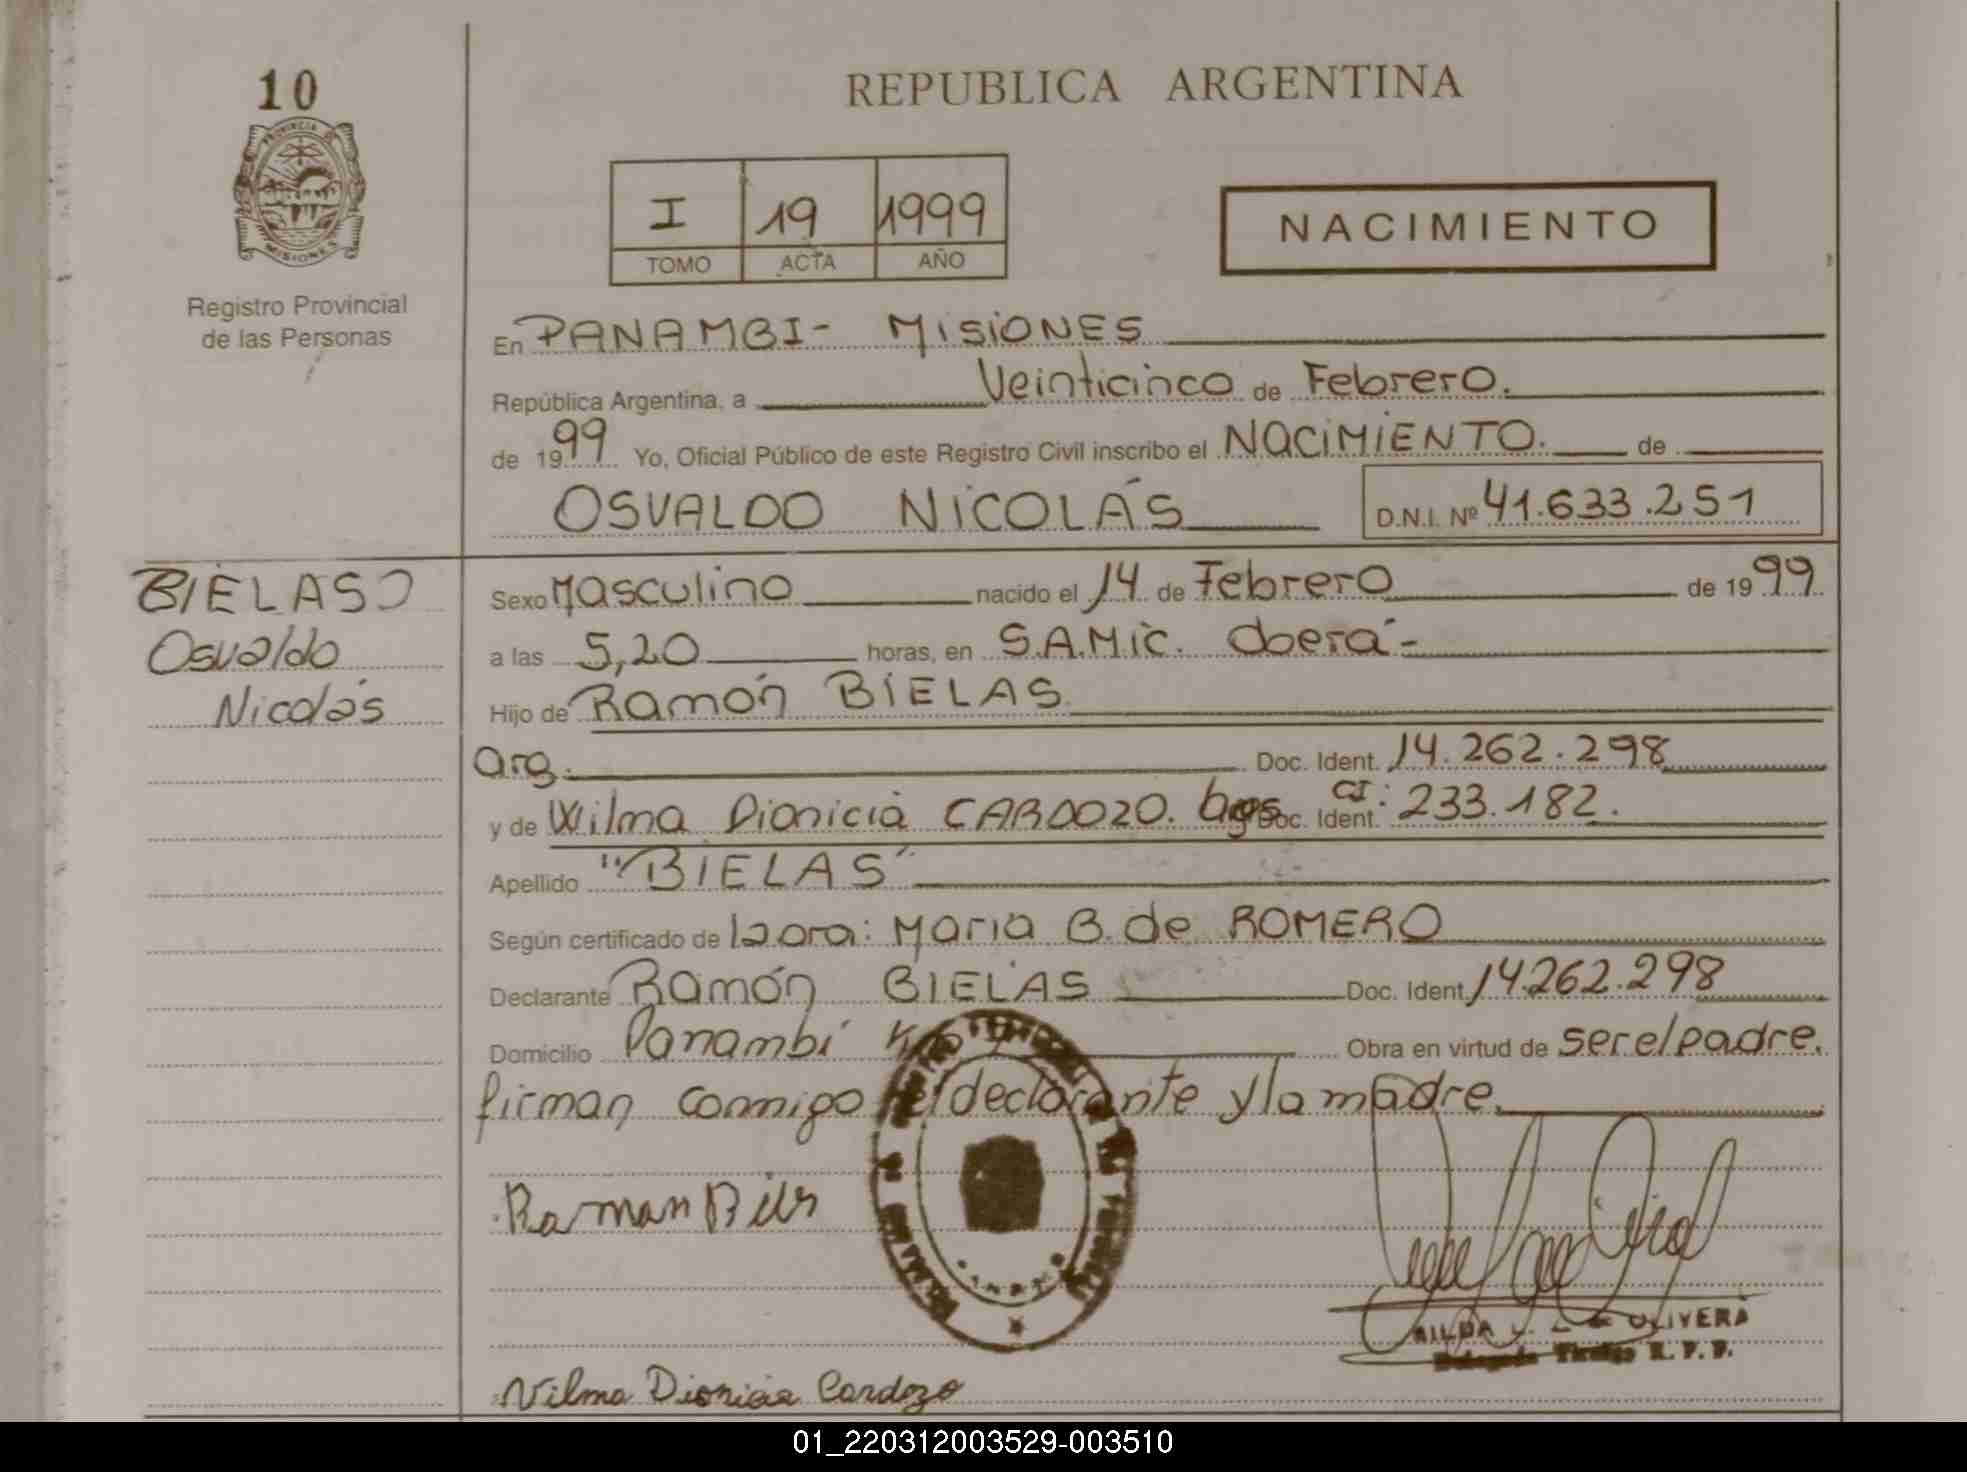 10
PROVINCIA DE
MISIONES
Registro Provincial
de las Personas
REPUBLICA ARGENTINA
I 19 1999
TOMO ACTA AÑO
NACIMIENTO
En PANAMBI- MISIONES
República Argentina, a Veinticinco de Febrero.
de 1999 Yo, Oficial Público de este Registro Civil inscribo el NACIMIENTO. de
OSVALDO NICOLÁS D.N.I. Nº 41.633.251
BIELAS
Osvaldo
Nicolás
Sexo Masculino nacido el 14 de Febrero de 1999
a las 5,20 horas, en S.A.M.ic. Oberá-
Hijo de Ramón BIELAS
Arg. Doc. Ident. 14.262.298
y de Wilma Dionicia CARDOZO. Doc. Ident. CI: 233.182.
Apellido "BIELAS"
Según certificado de María B. de ROMERO
Declarante Ramón BIELAS Doc. Ident. 14.262.298
Domicilio Panambí Obra en virtud de ser el padre.
firman conmigo el declarante y la madre.
Vilma Dionicia Cardozo
OLIVERA
R.P.P.
01_220312003529-003510